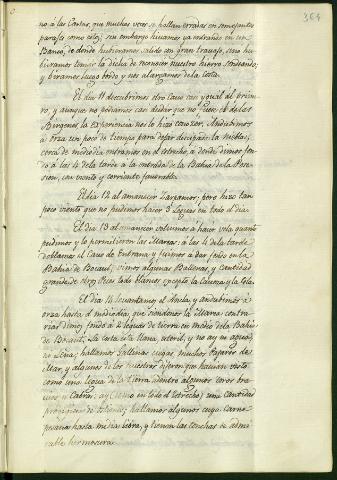 364
no à las Cartas, que muchas veces se hallan erradas en semejantes
parajes como este; sin embargo ivamos ya entrando en un
Banco, de donde huvieramos salido con gran travajo, sino hu-
bieramos tenido la dicha de reconocer nuestro hierro sondeando;
y viramos luego bordo y nos alargamos de la Costa.
El dia 11 descubrimos otro Cavo casi ygual al prime-
ro, y aunque no podiamos casi dudar que no fuese el de las
Birgenes, la experiencia nos lo hizo conozer. Anduvimos
a orza un poco de tiempo para dejar disipar la niebla;
cerca de mediodia entramos en el estrecho, a donde dimos fon-
do à las 4 de la tarde a la entrada de la Bahia de la Pose-
sion, con viento y corriente favorable.
El dia 12 al amanecer Zarpamos; pero hizo tan
poco viento que no pudimos hacer 3 leguas en todo el dia.
El dia 13 al amanecer volvimos à hacer vela quanto
pudimos y lo permitieron las Mareas: à las 4 de la tarde
doblamos el Cavo de Entrana y fuimos a dar fondo en la
Bahia de Boucaut; vimos algunas Ballenas, y cantidad
grande de otros Peces todo blancos excepto la Caveza y la Cola.
El dia 14 levantamos el Ancla y andubimos à
orza hasta el mediodia, que siendonos la Marea contra-
ria dimos fondo à 2 leguas de tierra en medio de la Bahia
de Boucaut; La costa es llana, esteril, y no ay en agua,
ni Leña; hallamos Gallinas ciegas, muchos Pajaros de
Mar, y algunos de los nuestros dijeron que havian visto
como una legua de la tierra adentro algunos corzos bra-
vos y Cabras: ay (como en todo el estrecho) una Cantidad
prodigiosa de Almejas; hallamos algunas cuya Carne
pesaria hasta media libra, y tienen las conchas de admi-
rable hermosura.